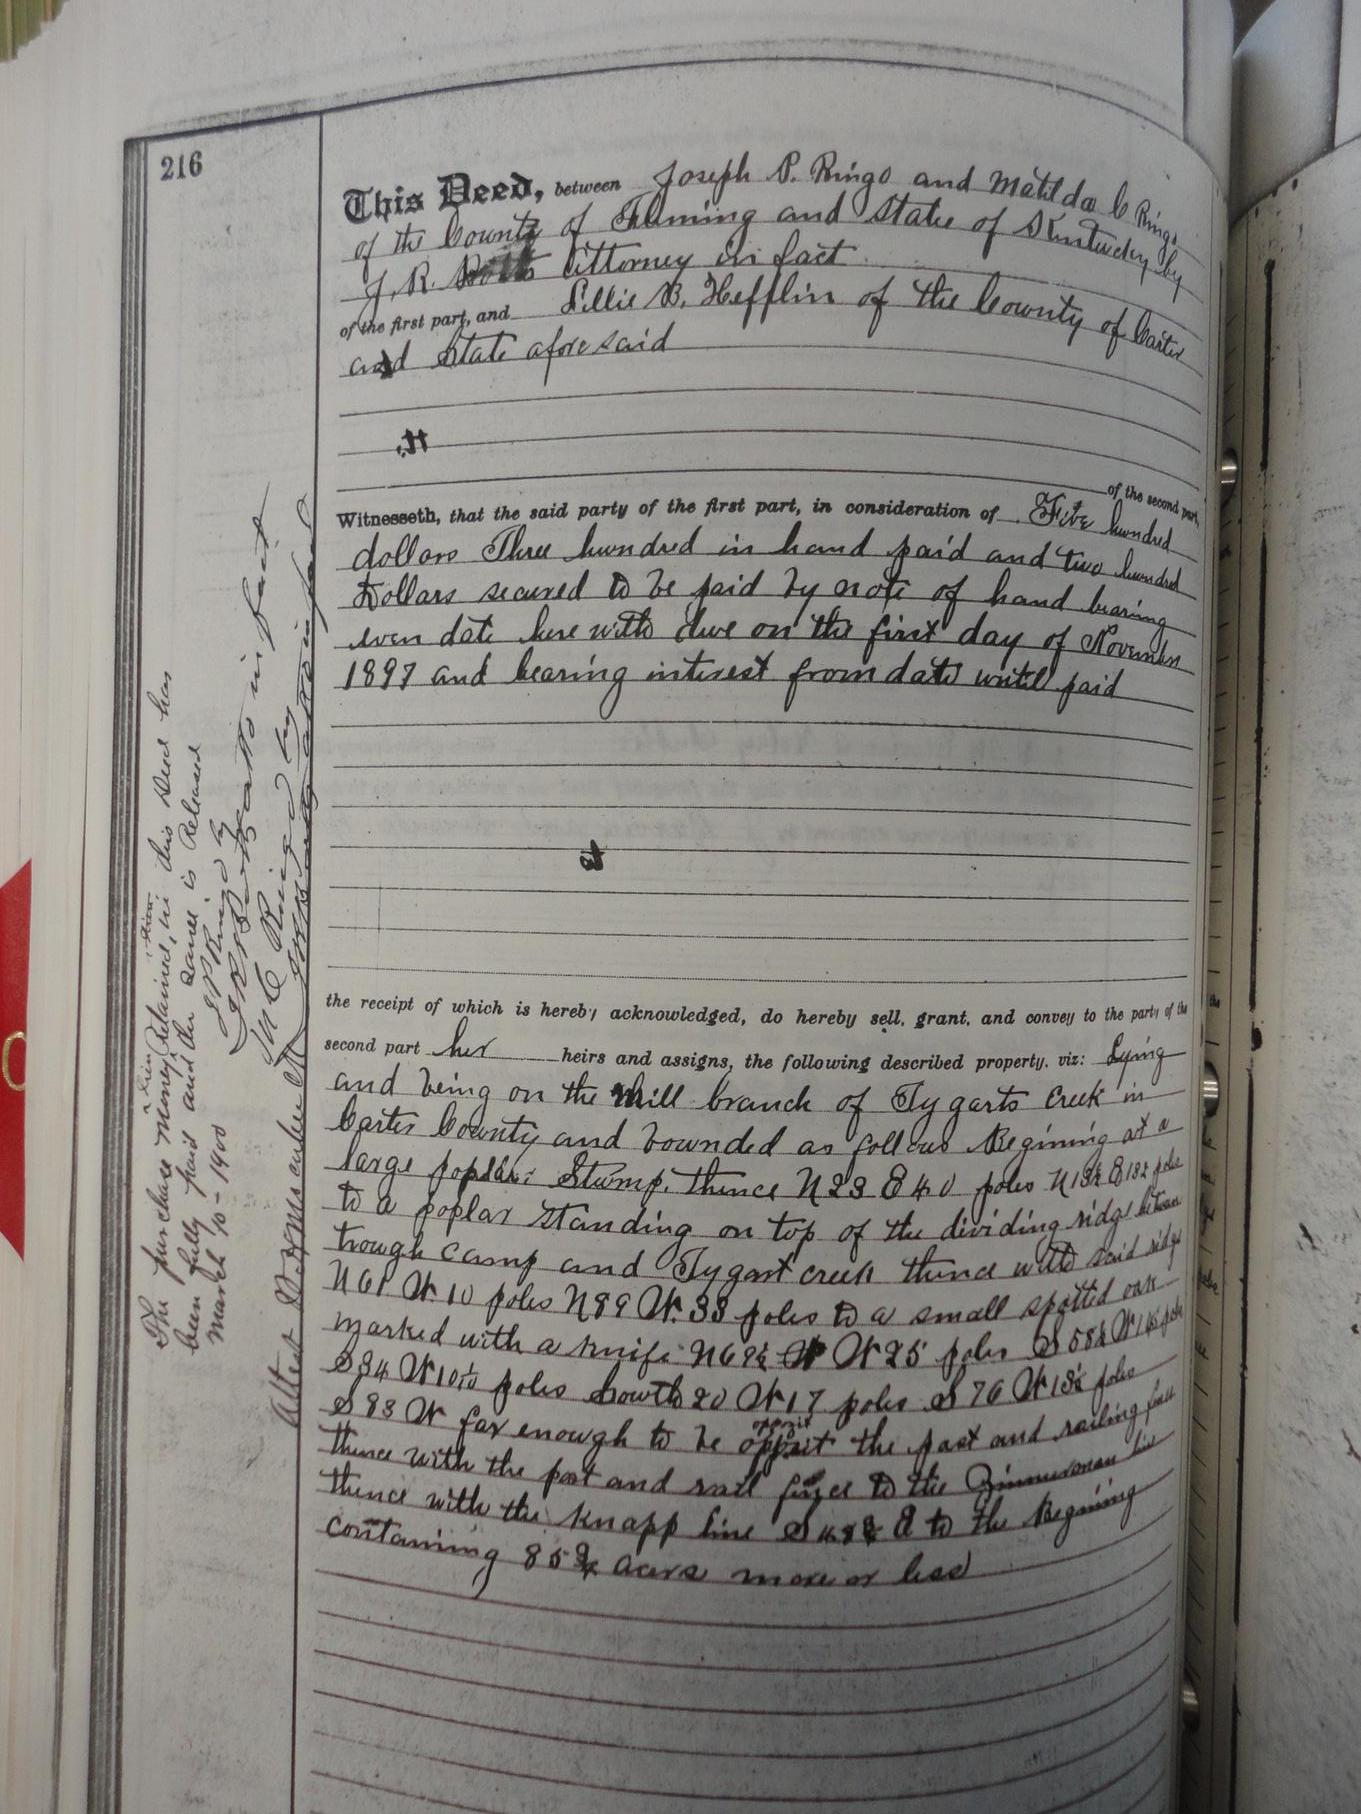 216
This Deed, between Joseph P. Ringo and Matilda C Ringo
of the County of Fleming and State of Kentucky by
J. R. Botts Attorney in fact
of the first part, and Lillie B. Hefflin of the County of Carter
and State aforesaid
of the second part,
Witnesseth, that the said party of the first part, in consideration of Five hundred
dollars Three hundred in hand paid and two hundred
Dollars secured to be paid by note of hand bearing
even date here with due on the first day of November
1897 and bearing interest from date until paid
the receipt of which is hereby acknowledged, do hereby sell, grant, and convey to the party of the
second part her heirs and assigns, the following described property, viz: Lying
and being on the Mill branch of Tygarts Creek in
Carter County and bounded as follows Begining at a
large poplar Stump, thence N23 E 40 poles N13½ E 13½ poles
to a poplar standing on top of the dividing ridge between
trough camp and Tygart creek thence with said ridge
N61 W 10 poles N89 W. 33 poles to a small spotted oak
marked with a knife N69½ W 25 poles S 58½ W poles
S84 W poles South 20 W 17 poles S 76 W poles
S 83 W far enough to be opposit the past and railing
opposit
thence with the post and rail to the Zimmerman line
thence with the Knapp line S 48 E to the Begining
containing 85¾ acres more or less
The purchase Money Retained, in this Deed has
lien
been fully paid and the same is Released
March 10 - 1900
J P Ringo by
J R Botts atto in fact
M C Ringo by
J R Botts atto in fact
Attest